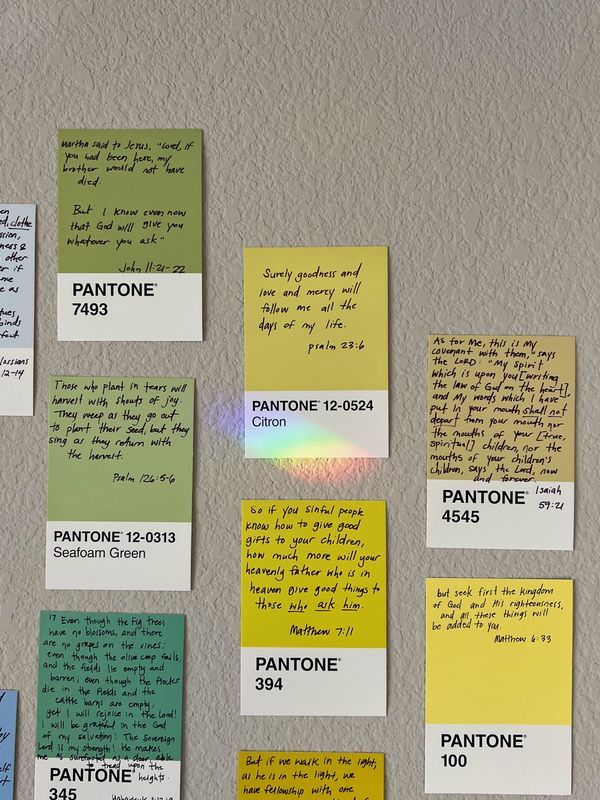 en
ed, clothe
ssion,
ness &
other
er if
me
e as
tues
binds
rfect
lossians
12-14
Martha said to Jesus, "Lord, if
you had been here, my
brother would not have
died.
But I know even now
that God will give you
whatever you ask"
John 11:21-22
PANTONE®
7493
Those who plant in tears will
harvest with shouts of joy.
They weep as they go out
to plant their seed, but they
sing as they return with
the harvest.
Psalm 126:5-6
PANTONE® 12-0313
Seafoam Green
17 Even though the fig trees
have no blossoms, and there
are no grapes on the vines;
even though the olive crop fails,
and the fields lie empty and
barren; even though the flocks
die in the fields and the
cattle barns are empty,
yet I will rejoice in the Lord!
I will be grateful in the God
of my salvation! The Sovereign
Lord is my strength! He makes
me as surefooted as a deer, able
to tread upon the
heights.
PANTONE®
345
Surely goodness and
love and mercy will
follow me all the
days of my life.
psalm 23:6
PANTONE® 12-0524
Citron
So if you sinful people
know how to give good
gifts to your children,
how much more will your
heavenly father who is in
heaven give good things to
those who ask him.
Matthew 7:11
PANTONE®
394
But if we walk in the light,
as he is in the light, we
have fellowship with one
As for Me, this is My
covenant with them," says
the LORD: "My Spirit
which is upon you [writing
the law of God on the heart],
and My words which I have
put in your mouth shall not
depart from your mouth nor
the mouths of your [true,
spiritual] children, nor the
mouths of your children's
children, says the Lord, now
and forever.
Isaiah
59:21
PANTONE®
4545
but seek first the kingdom
of God and His righteousness,
and all these things will
be added to you.
Matthew 6:33
PANTONE®
100